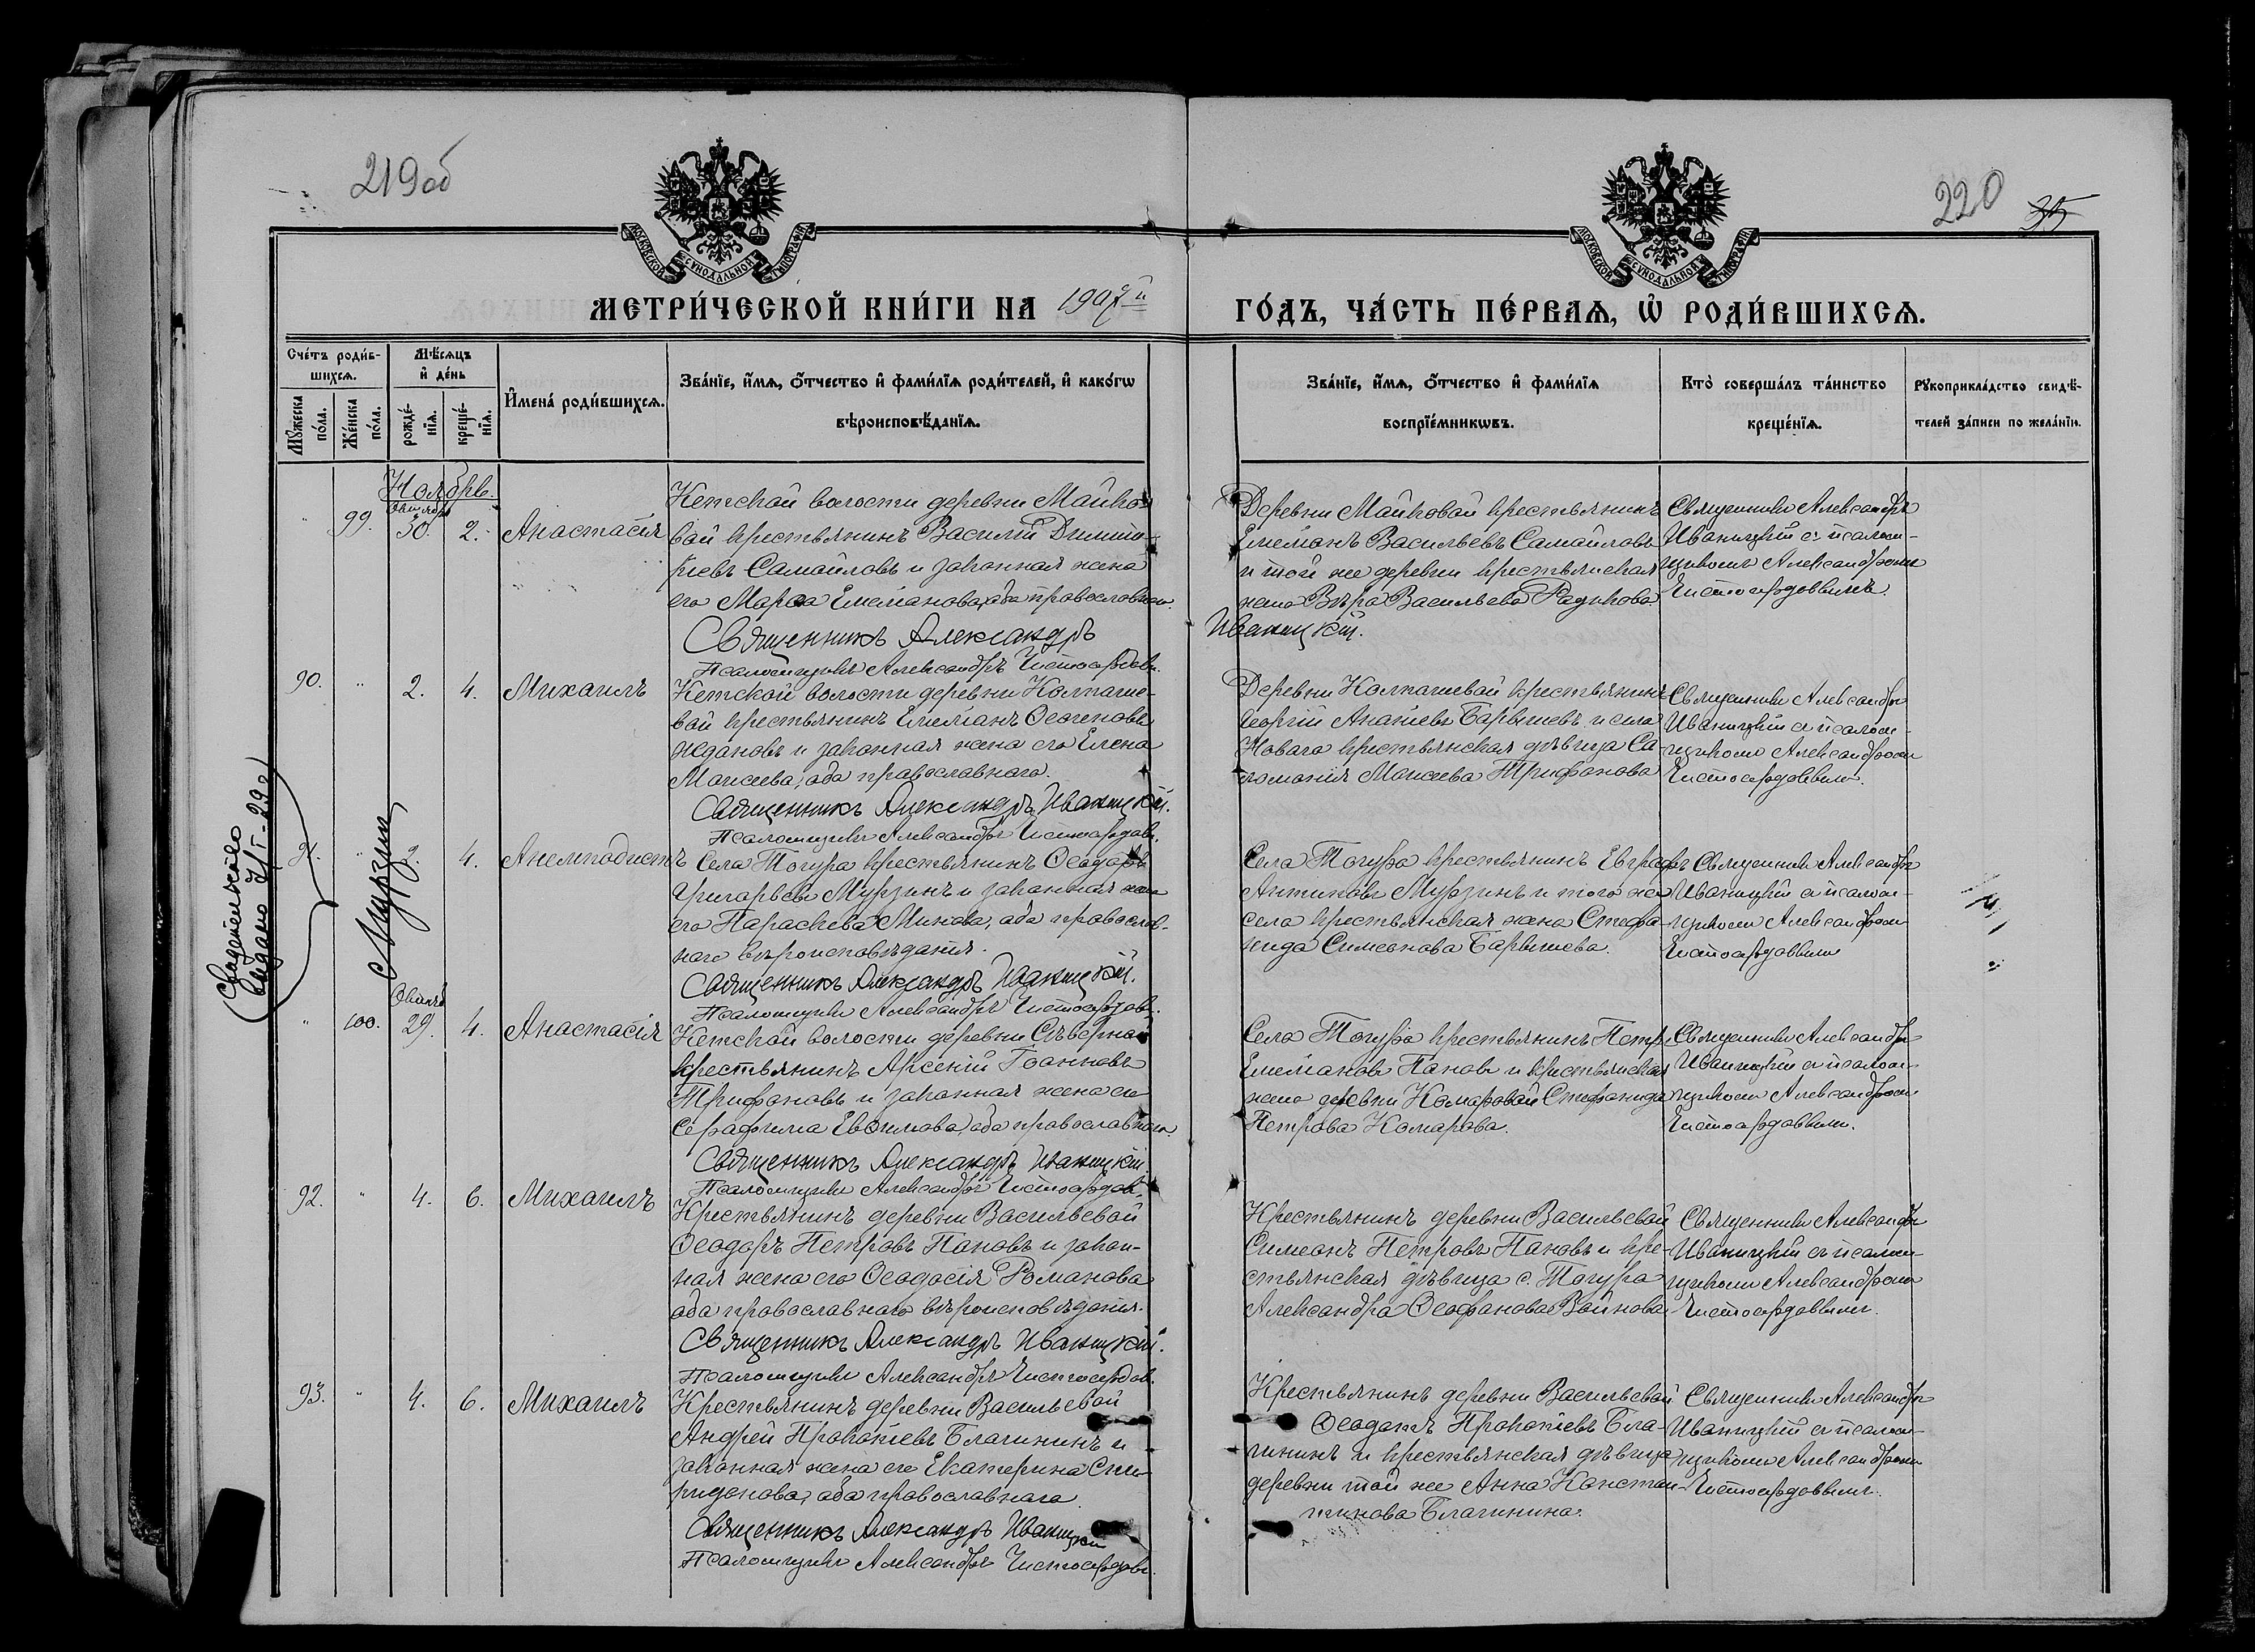 219 об
220
35
МОСКОВСКОЙ СѴНОДАЛЬНОЙ ТИПОГРАФІИ
МОСКОВСКОЙ СѴНОДАЛЬНОЙ ТИПОГРАФІИ
МЕТРИ́ЧЕСКОЙ КНИ́ГИ НА 1907й
ГО́ДЪ, ЧА́СТЬ ПЕ́РВАѦ, Ѡ҆ РОДИ́ВШИХСѦ.
Сче́тъ роди́в-
шихсѧ.
Мꙋ́жеска по́ла.
Же́нска по́ла.
Мѣ́сѧцъ
и҆ де́нь
рожде́-
нїѧ.
креще́-
нїѧ.
И҆мена́ роди́вшихсѧ.
Зва́нїе, и҆́мѧ, ѻ҆́тчество и҆ фами́лїѧ роди́телей, и҆ како́гѡ
вѣроисповѣ́данїѧ.
Зва́нїе, и҆́мѧ, ѻ҆́тчество и҆ фами́лїѧ
воспрїе́мникѡвъ.
Кто̀ соверша́лъ та́инство
креще́нїѧ.
Рꙋкоприкла́дство свидѣ́-
телей за́писи по жела́нїю.
Ноябрь.
"
99.
Октября
30.
2.
Анастасія
Кетской волости деревни Майко-
вой крестьянинъ Василій Димит-
ріевъ Самойловъ и законная жена
его Марѳа Емеліанова, оба православнаго.
Священникъ Александръ
Иваницкій.
Псаломщикъ Александръ Чистосердовъ.
Деревни Майковой крестьянинъ
Емеліанъ Васильевъ Самойловъ
и той же деревни крестьянская
жена Вѣра Васильева Радикова
Священникъ Александръ
Иваницкій съ псалом-
щикомъ Александромъ
Чистосердовымъ.
90.
"
2.
4.
Михаилъ
Кетской волости деревни Колпаше-
вой крестьянинъ Емеліанъ Ѳеогеновъ
Ждановъ и законная жена его Елена
Моисеева, оба православнаго.
Священникъ Александръ Иваницкій.
Псаломщикъ Александръ Чистосердовъ.
Деревни Колпашевой крестьянинъ
Георгій Ананіевъ Барышевъ и села
Новаго крестьянская дѣвица Са-
ломонія Моисеева Трифонова
Священникъ Александръ
Иваницкій съ псалом-
щикомъ Александромъ
Чистосердовымъ.
Свидетельство
Выдано
Мурзин
91.
"
2.
4.
Анемподистъ
Села Тогура крестьянинъ Ѳеодоръ
Григорьевъ Мурзинъ и законная жена
его Параскева Минова, оба православ-
наго вѣроисповѣданія.
Священникъ Александръ Иваницкій.
Псаломщикъ Александръ Чистосердовъ.
Села Тогура крестьянинъ Евграфъ
Антиповъ Мурзинъ и того же
села крестьянская жена Стефа-
нида Симеонова Барышева.
Священникъ Александръ
Иваницкій съ псалом-
щикомъ Александромъ
Чистосердовымъ
"
100.
Октября
29.
4.
Анастасія
Кетской волости деревни Сѣверной
крестьянинъ Арсеній Іоанновъ
Трифоновъ и законная жена его
Серафима Евѳимова, оба православнаго.
Священникъ Александръ Иваницкій.
Псаломщикъ Александръ Чистосердовъ.
Села Тогура крестьянинъ Петръ
Емеліановъ Пановъ и крестьянская
жена деревни Комаровой Стефанида
Петрова Комарова.
Священникъ Александръ
Иваницкій съ псалом-
щикомъ Александромъ
Чистосердовымъ.
92.
"
4.
6.
Михаилъ
Крестьянинъ деревни Васильевой
Ѳеодоръ Петровъ Пановъ и закон-
ная жена его Ѳеодосія Романова
оба православнаго вѣроисповѣданія.
Священникъ Александръ Иваницкій.
Псаломщикъ Александръ Чистосердовъ.
Крестьянинъ деревни Васильевой
Симеонъ Петровъ Пановъ и кре-
стьянская дѣвица с. Тогура
Александра Ѳеофанова Войнова
Священникъ Александръ
Иваницкій съ псалом-
щикомъ Александромъ
Чистосердовымъ.
93.
"
4.
6.
Михаилъ
Крестьянинъ деревни Васильевой
Андрей Прокопіевъ Благининъ и
законная жена его Екатерина Спи-
ридонова, оба православнаго.
Священникъ Александръ Иваницкій
Псаломщикъ Александръ Чистосердовъ.
Крестьянинъ деревни Васильевой
Ѳеодотъ Прокопіевъ Бла-
гининъ и крестьянская дѣвица
деревни той же Анна Констан-
тинова Благинина.
Священникъ Александръ
Иваницкій съ псалом-
щикомъ Александромъ
Чистосердовымъ.